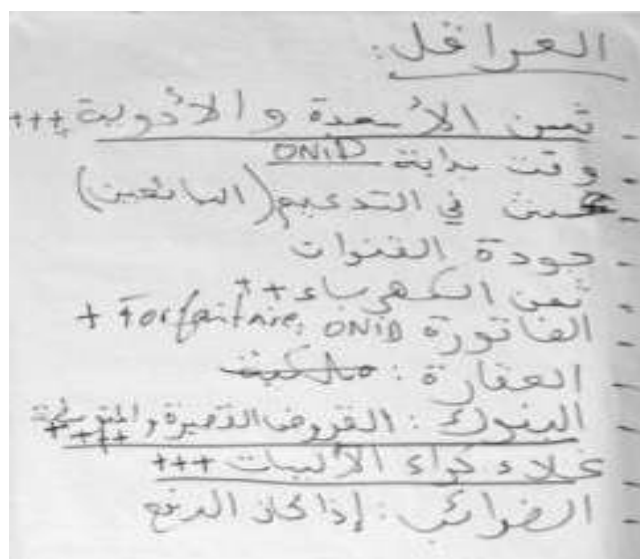 العراقل:
- ثمن الأسمدة و الأدوية +++
- وقت بداية ONID
- في التدعيم (البائعين)
- جودة القنوات
- ثمن الكهرباء ++
- الفاتورة Forfaitaire, ONID +
- العقارة :
- البنوك : القروض القصيرة و المتوسطة ++++
- غلاء كراء الأليات +++
- الضرائب : إذا كان الدفع